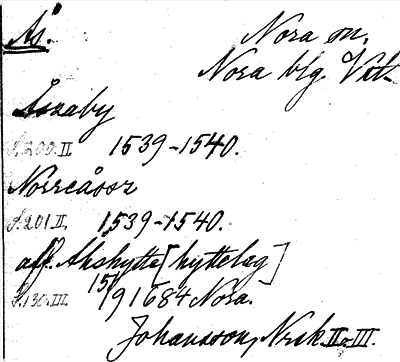 Ås.
Nora sn,
Nora blg. Vstl.
Åszaby
S.200.II 1539-1540.
Norreåssz
S.201.II. 1539-1540.
aff. Åhshytte [hyttelag]
S.130.III. 15/9 1684 Nora.
Johansson, Nrsk II o. III.